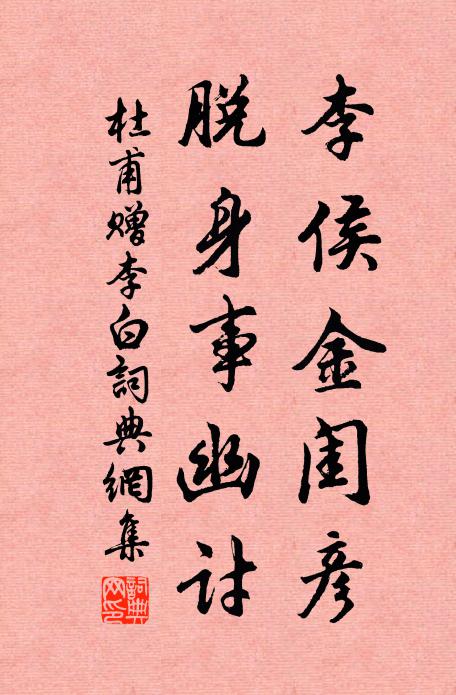 李侯金闺彦
脱身事幽讨
杜甫赠李白詞典網集
詞典
网印